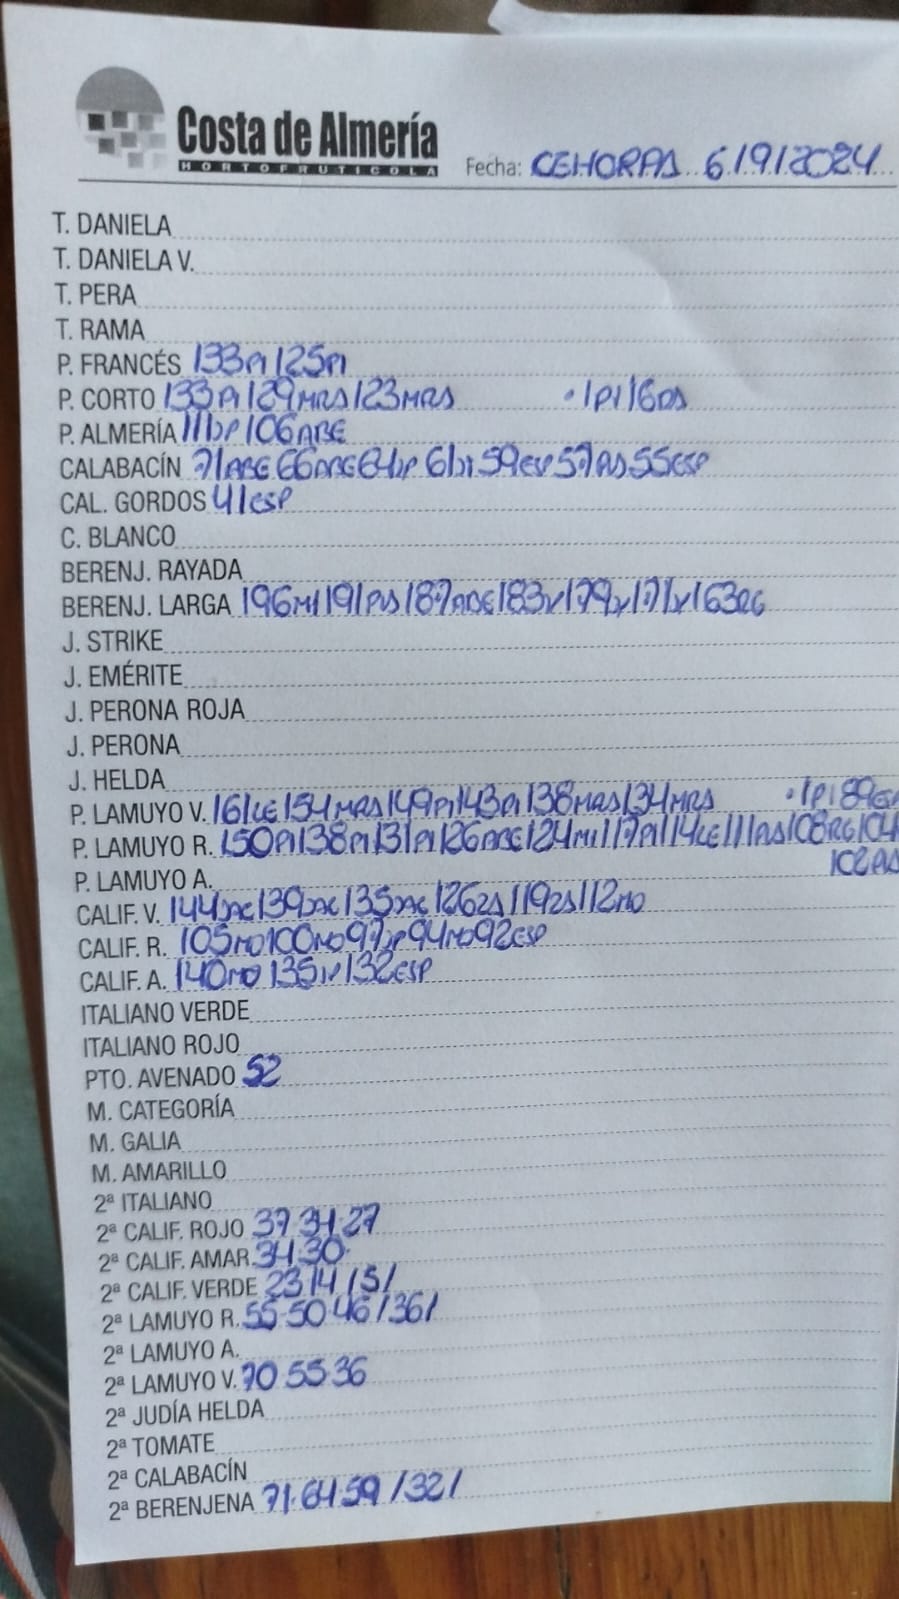 Costa de Almería
HORTOFRUTICOLA
Fecha: CEHORPA 6/9/2024
T. DANIELA
T. DANIELA V.
T. PERA
T. RAMA
P. FRANCÉS 133PI 125PI
P. CORTO 133PI 129MRS 123MRS ·1P1/16
P. ALMERÍA 111 106ABE
CALABACÍN 71ABE 66ABE 64 61 59ESP 57 55ESP
CAL. GORDOS 41ESP
C. BLANCO
BERENJ. RAYADA
BERENJ. LARGA 196 191 187ABE 183 179 171 163RG
J. STRIKE
J. EMÉRITE
J. PERONA ROJA
J. PERONA
J. HELDA
P. LAMUYO V. 161LE 154MRS 149PI 143PI 138MRS 134MRS ·1P1 89ES
P. LAMUYO R. 150PI 138PI 131PI 126ABE 124 117PI 114LE 111 108RG 104
102
P. LAMUYO A.
CALIF. V. 144 139 135 126 119 112MO
CALIF. R. 105MO 100MO 97 94MO 92ESP
CALIF. A. 140MO 135 132ESP
ITALIANO VERDE
ITALIANO ROJO
PTO. AVENADO 52
M. CATEGORÍA
M. GALIA
M. AMARILLO
2ª ITALIANO
2ª CALIF. ROJO 37·34·27
2ª CALIF. AMAR. 34·30·
2ª CALIF. VERDE 23 14 /5/
2ª LAMUYO R. 55·50·46 /36/
2ª LAMUYO A.
2ª LAMUYO V. 70·55·36
2ª JUDÍA HELDA
2ª TOMATE
2ª CALABACÍN
2ª BERENJENA 71·64·59 /32/